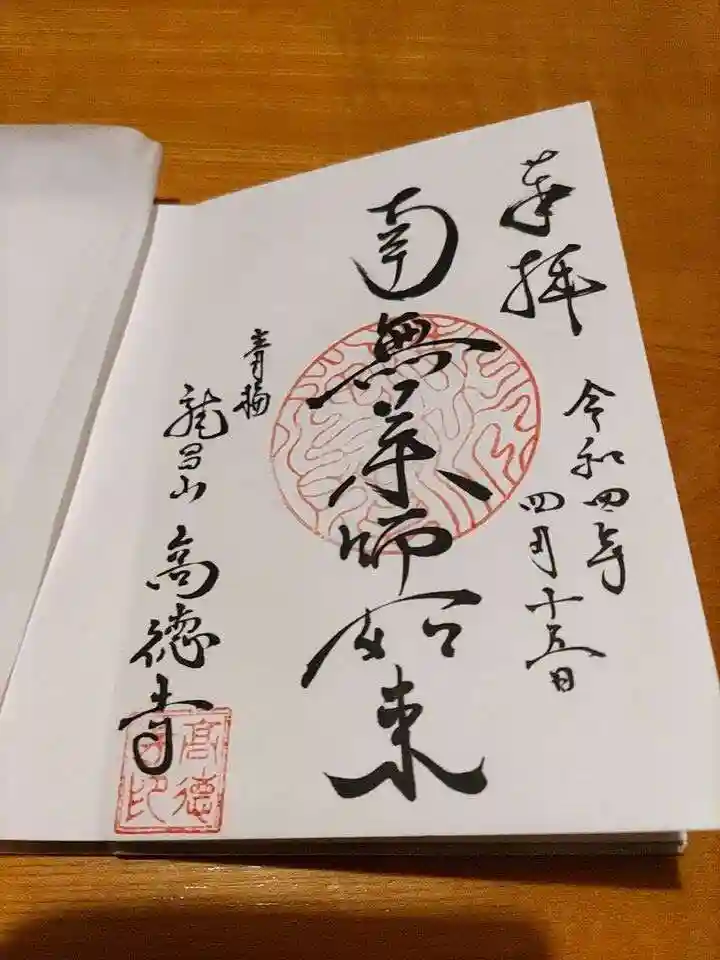 奉拝
令和四年
四月十五日
南無薬師如来
青梅
龍昌山 高徳寺
高徳
寺印